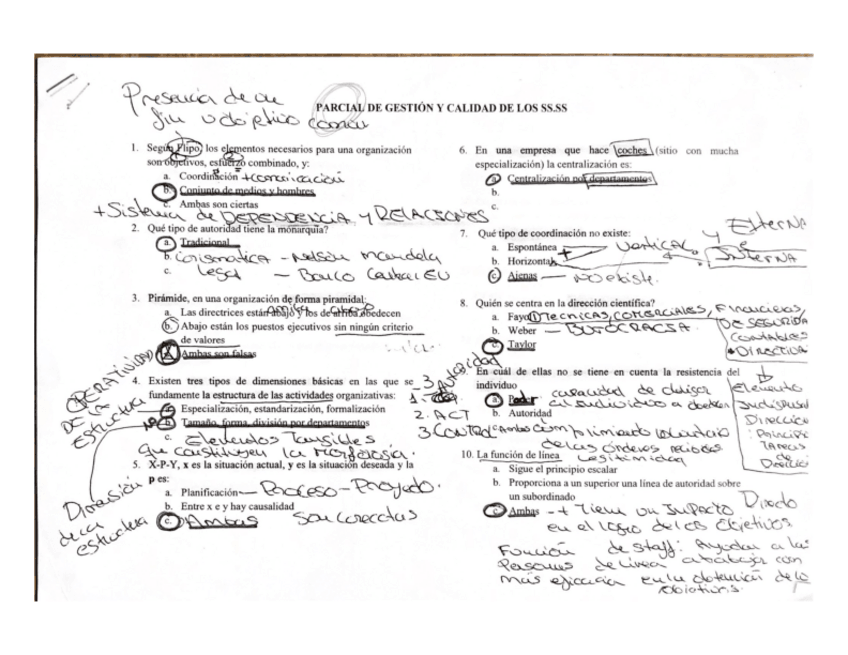 Presencia de un
fin u objetivo común
PARCIAL DE GESTIÓN Y CALIDAD DE LOS SS.SS
1. Según Flipo, los elementos necesarios para una organización
son objetivos, esfuerzo combinado, y:
a. Coordinación + comunicación
b. Conjunto de medios y hombres
c. Ambas son ciertas
+ Sistema de DEPENDENCIA y RELACIONES
2. Qué tipo de autoridad tiene la monarquía?
a. Tradicional
b. Carismatica - Nelson Mandela
c. Legal - Banco Central EU
3. Pirámide, en una organización de forma piramidal:
a. Las directrices están abajo y los de arriba obedecen
arriba abajo
b. Abajo están los puestos ejecutivos sin ningún criterio
de valores
c. Ambas son falsas
OPERATIVIDAD
DE LA
ESTRUCTURA
4. Existen tres tipos de dimensiones básicas en las que se
fundamente la estructura de las actividades organizativas:
a. Especialización, estandarización, formalización
b. Tamaño, forma, división por departamentos
c. Elementos Tangibles
que constituyen la morfología.
Dimensión
de la
estructura
5. X-P-Y, x es la situación actual, y es la situación deseada y la
p es:
a. Planificación - Proceso - Proyecto.
b. Entre x e y hay causalidad
c. Ambas son correctas
6. En una empresa que hace coches (sitio con mucha
especialización) la centralización es:
a. Centralización por departamentos
b.
c.
7. Qué tipo de coordinación no existe:
a. Espontánea
b. Horizontal + Vertical y Externa
Interna
c. Ajenas - no existe.
8. Quién se centra en la dirección científica?
a. Fayol Tecnicas, comerciales, Financieras,
DE SEGURIDA
contables
Directiva
b. Weber - BUROCRACIA
c. Taylor
3 Autoridad
2. ACT
3 Control
9. En cuál de ellas no se tiene en cuenta la resistencia del
individuo
a. Poder capacidad de obligar
al individuo a obedecer
b. Autoridad
c. Ambas cumplimiento voluntario
de las órdenes
Legitimidad
Elemento
Dirección
Principio
Tareas
de
Dirección
10. La función de línea
a. Sigue el principio escalar
b. Proporciona a un superior una línea de autoridad sobre
un subordinado
c. Ambas - + Tiene un Impacto Directo
en el logro de los Objetivos
Función de staff: Ayudar a las
Personas de línea a trabajar con
más eficacia en la obtención de lo
objetivos.